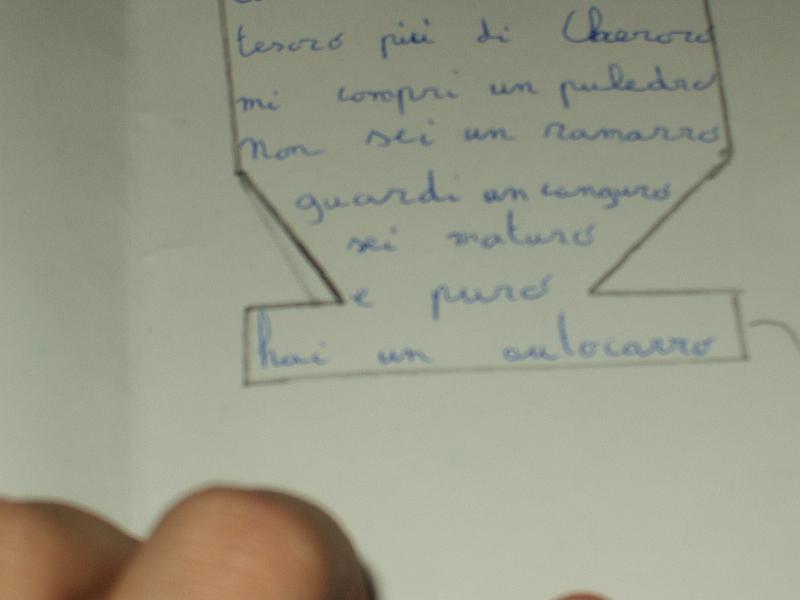 tesoro più di
mi compri un puledro
non sei un ramarro
guardi un canguro
sei maturo
e puro
hai un autocarro